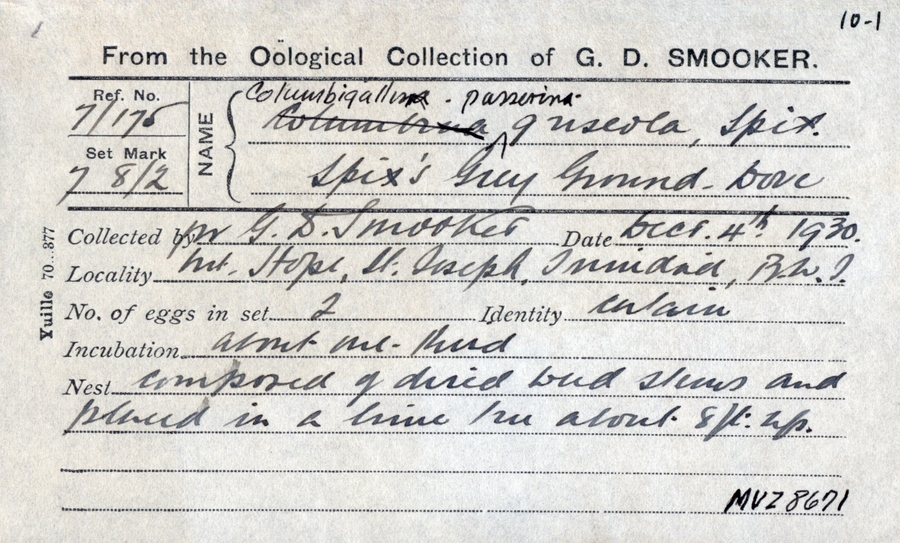 10-1
From the Oölogical Collection of G. D. SMOOKER.
Ref. No.
7/175
Set Mark
7 8/2
NAME
Columbigallina - passerina
Columbina griseola, Spix.
Spix's Grey Ground-Dove
Collected by for G. D. Smooker Date Dect. 4th 1930.
Locality Mt. Hope, St. Joseph, Trinidad, B.W.I.
No. of eggs in set 2 Identity certain
Incubation about one-third
Nest composed of dried weed stems and
placed in a lime tree about 8ft. up.
Yuille 70...877
MVZ 8671